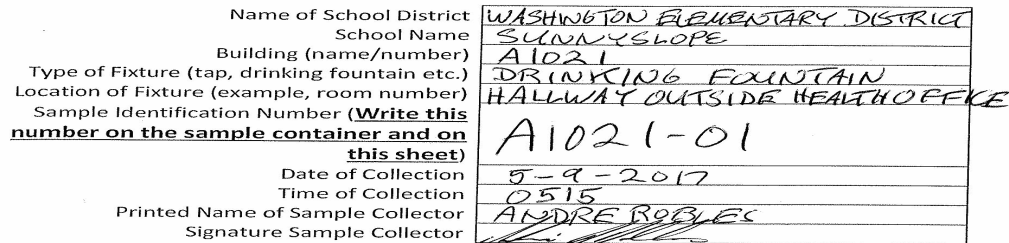 Name of School District WASHINGTON ELEMENTARY DISTRICT
School Name SUNNYSLOPE
Building (name/number) A1021
Type of Fixture (tap, drinking fountain etc.) DRINKING FOUNTAIN
Location of Fixture (example, room number) HALLWAY OUTSIDE HEALTH OFFICE
Sample Identification Number (Write this
number on the sample container and on A1021-01
this sheet)
Date of Collection 5-9-2017
Time of Collection 0515
Printed Name of Sample Collector ANDRE ROBLES
Signature Sample Collector